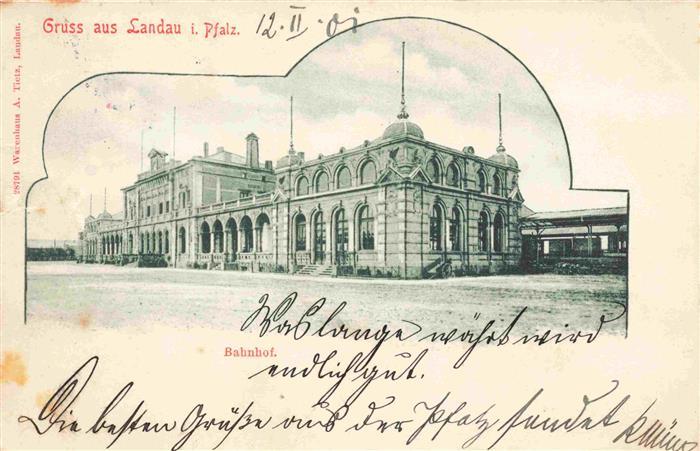 Gruss aus Landau i. Pfalz.
12. II. 01
78791 Warenhaus A. Tietz, Landau.
Was lange währt wird
Bahnhof.
endlich gut.
Die besten Grüße aus der Pfalz sendet